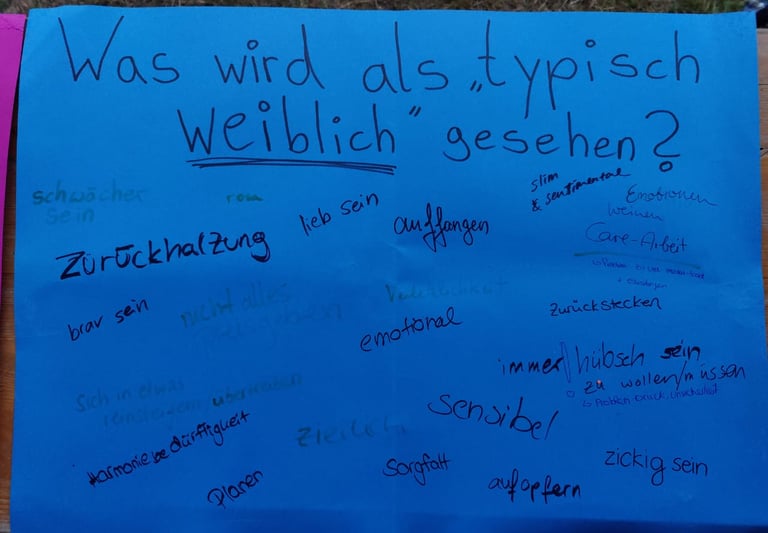 Was wird als „typisch
weiblich" gesehen?
schwächer
sein
rosa
lieb sein
auffangen
slim
& sentimental
Emotionen
weinen
Care-Arbeit
Zurückhaltung
brav sein
nicht alles
Verletzlichkeit
emotional
zurückstecken
immer hübsch sein
zu wollen/müssen
Sich in etwas
reinsteigern, übertreiben
sensibel
Harmoniebedürftigkeit
zierlich
Sorgfalt
zickig sein
Planen
aufopfern